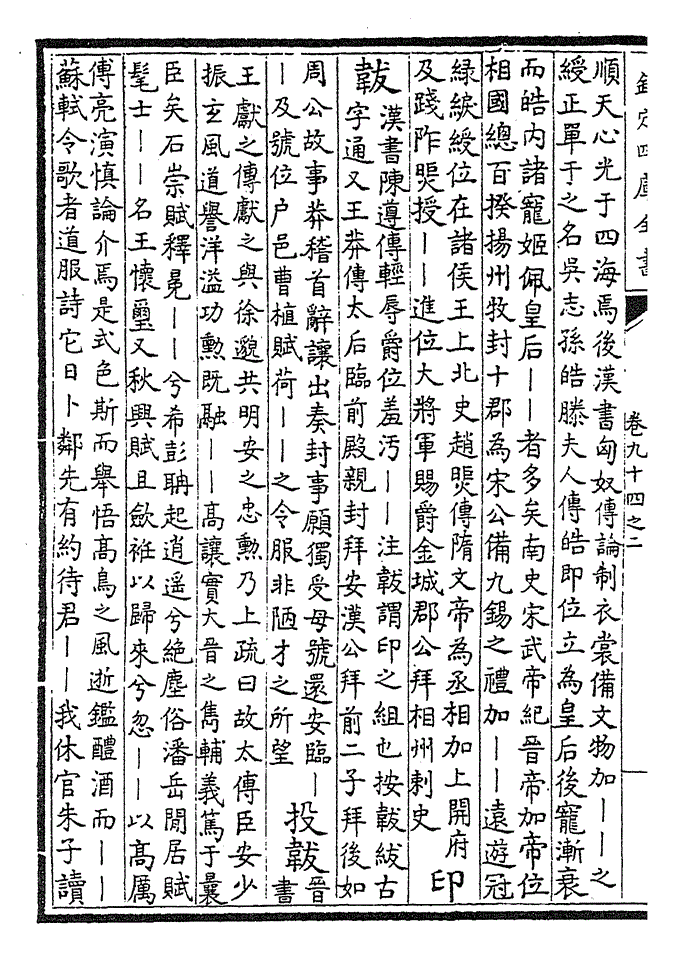 欽定四庫全書
卷九十四之二
順天心光于四海焉後漢書匈奴傳論制衣裳備文物加——之
綬正單于之名吳志孫皓滕夫人傳皓即位立為皇后後寵漸衰
而皓内諸寵姬佩皇后——者多矣南史宋武帝紀晉帝加帝位
相國總百揆揚州牧封十郡為宋公備九錫之禮加——遠遊冠
綠綟綬位在諸侯王上北史趙煚傳隋文帝為丞相加上開府
及踐阼煚授——進位大將軍賜爵金城郡公拜相州刺史
印
韍
漢書陳遵傳輕辱爵位羞汚——注韍謂印之組也按韍紱古
字通又王莽傳太后臨前殿親封拜安漢公拜前二子拜後如
周公故事莽稽首辭讓出奏封事願獨受母號還安臨—
—及號位户邑曹植賦荷——之令服非陋才之所望
投韍
晉
書
王獻之傳獻之與徐邈共明安之忠勲乃上疏曰故太傅臣安少
振玄風道譽洋溢功勲既融——高讓實大晉之雋輔義篤于曩
臣矣石崇賦釋冕——兮希彭聃起逍遥兮絶塵俗潘岳閒居賦
髦士——名王懷璽又秋興賦且歛袵以歸來兮忽——以高厲
傅亮演慎論介焉是式色斯而舉悟高鳥之風逝鑑醴酒而——
蘇軾令歌者道服詩它日卜鄰先有約待君——我休官朱子讀